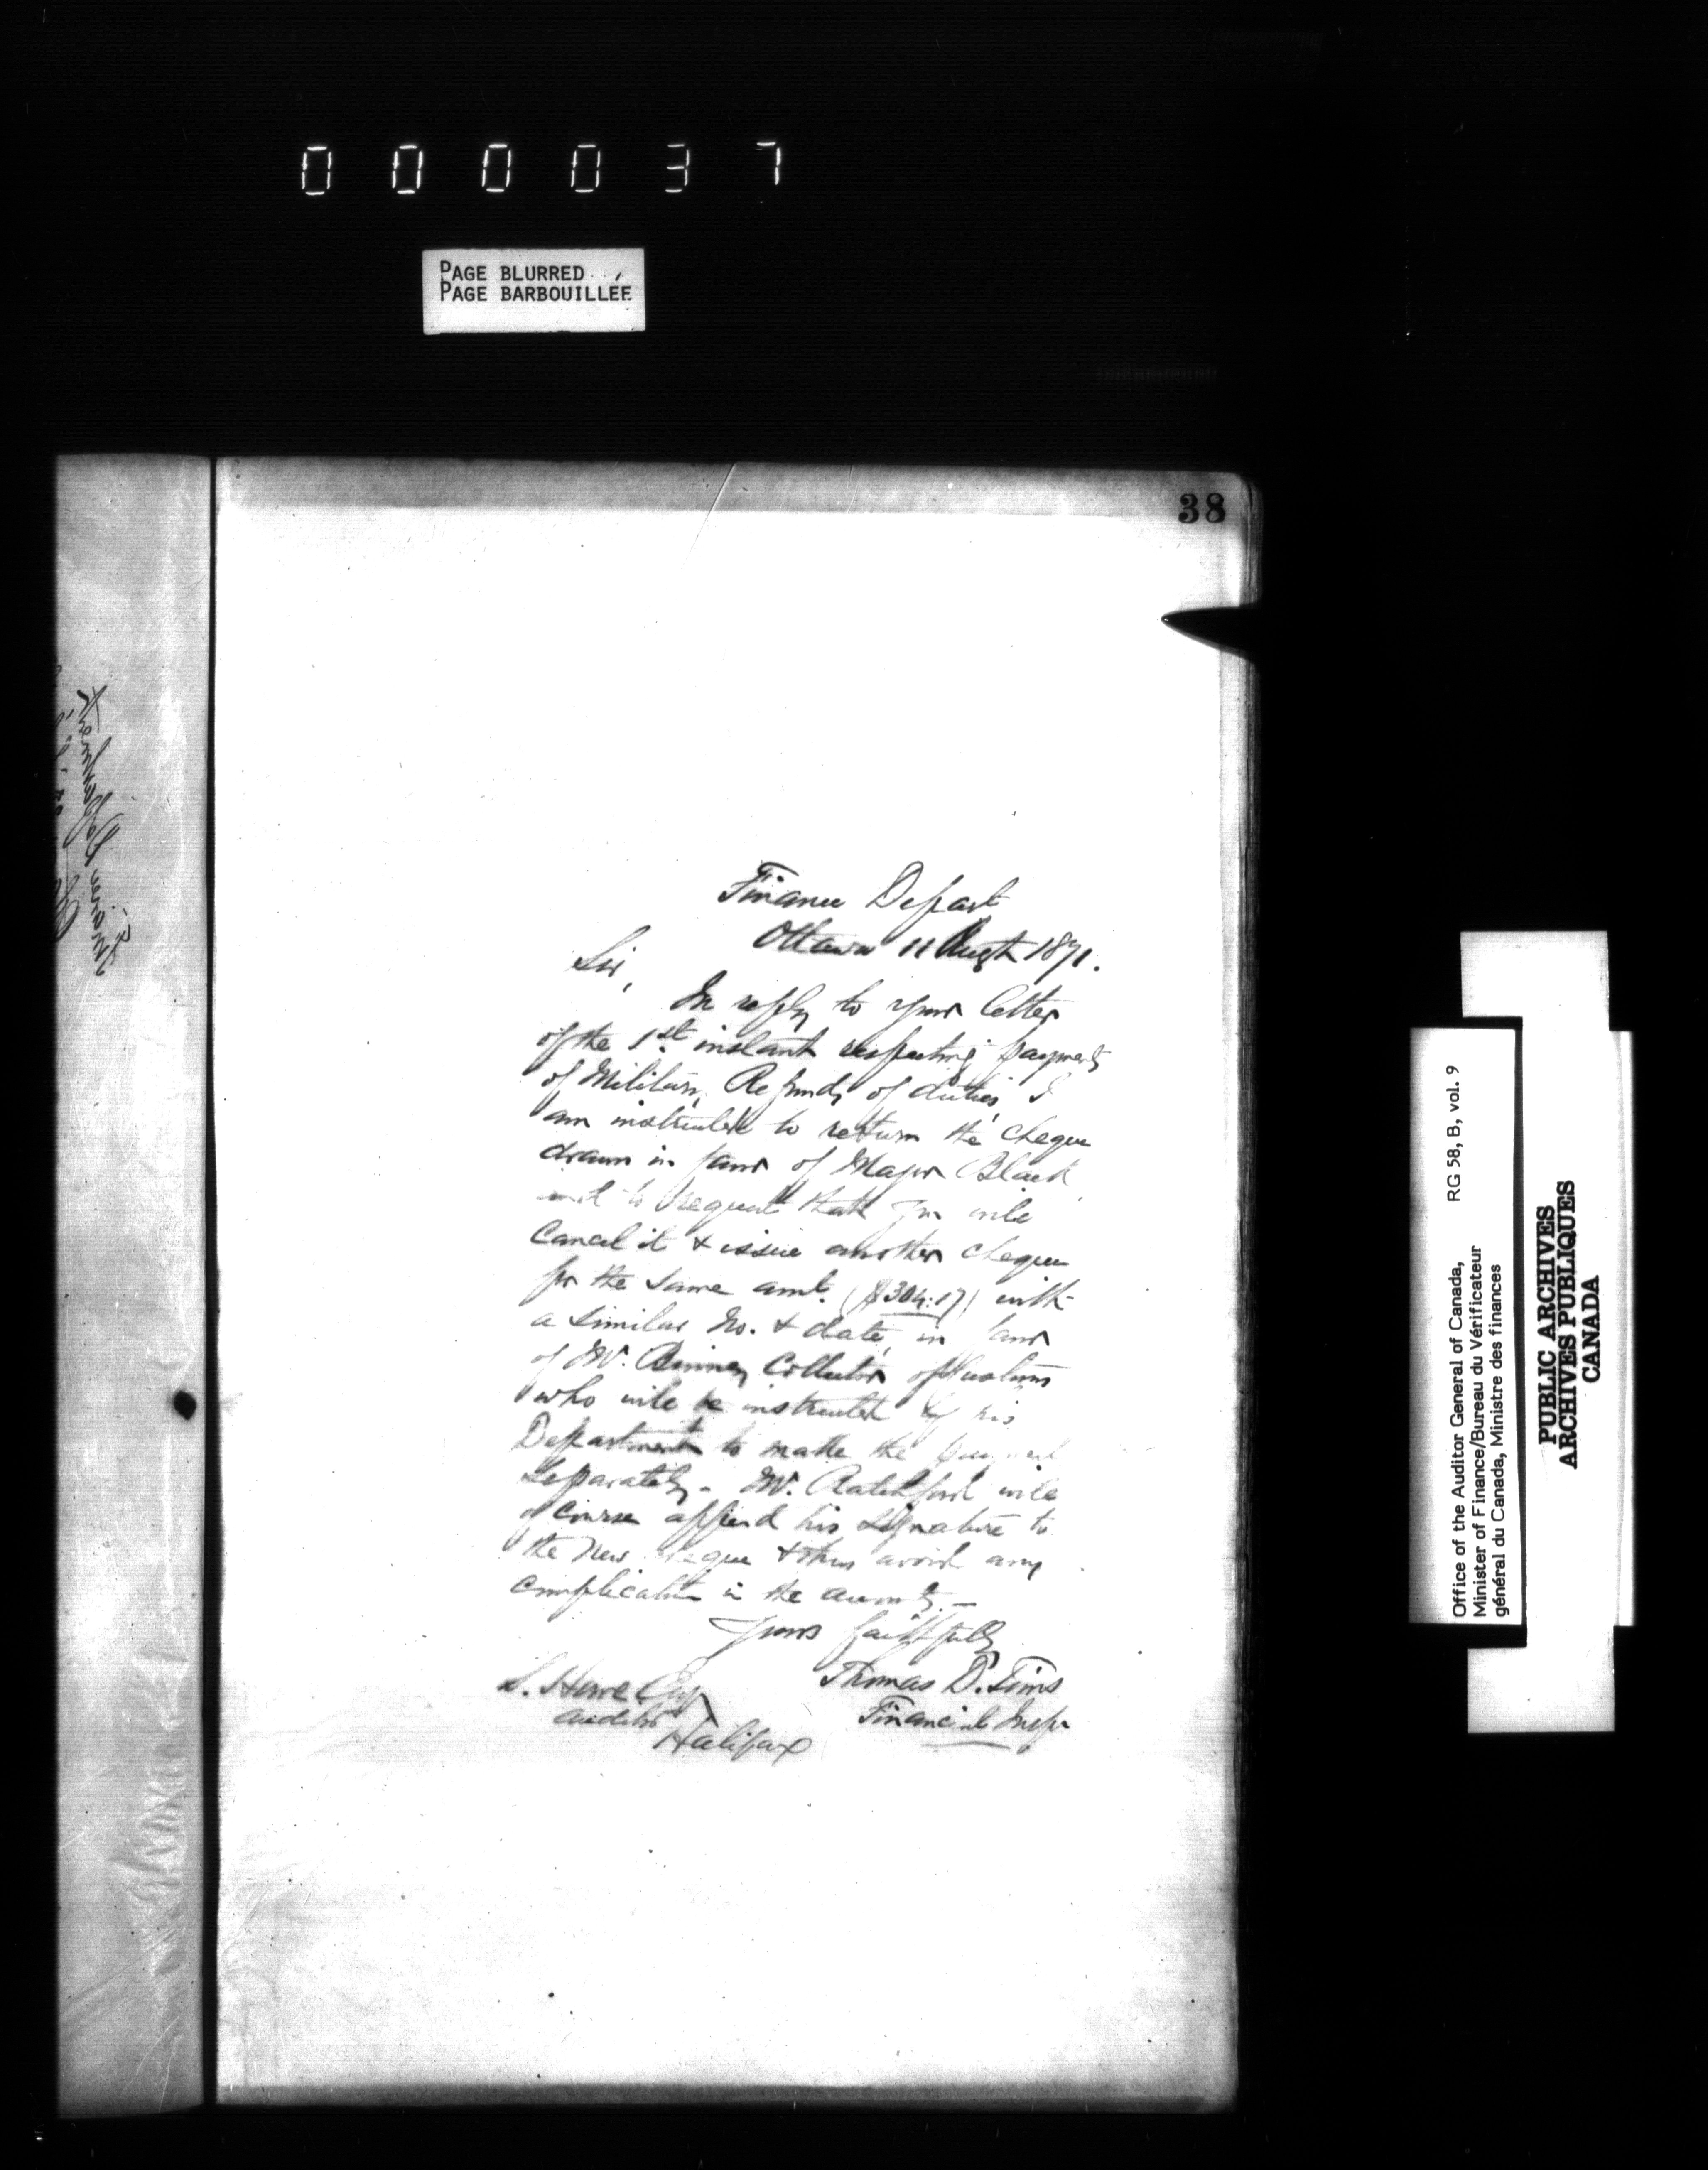 000037
PAGE BLURRED
PAGE BARBOUILLÉE
38
Finance Depart
Ottawa 11 Augt 1871.
Sir,
In reply to your letter
of the 1st instant respecting payments
of Military Refunds of duties, I
am instructed to return the cheque
drawn in favor of Major Black
and to request that you will
cancel it & issue another cheque
for the same amt. ($304.17) with
a similar No. & date, in favor
of Mr. Binney Collector of Customs
who will be instructed by his
Department to make the payment
separately. Mr. Ratchford will
of course append his signature to
the new cheque & thus avoid any
complication in the accounts.—
Yours faithfully
Thomas D. Tims
Financial Inspr
S. Howe Esqr
Auditor
Halifax
Finance Department
Office of the Auditor General of Canada, RG 58, B, vol. 9
Minister of Finance/Bureau du Vérificateur
général du Canada, Ministre des finances
PUBLIC ARCHIVES
ARCHIVES PUBLIQUES
CANADA